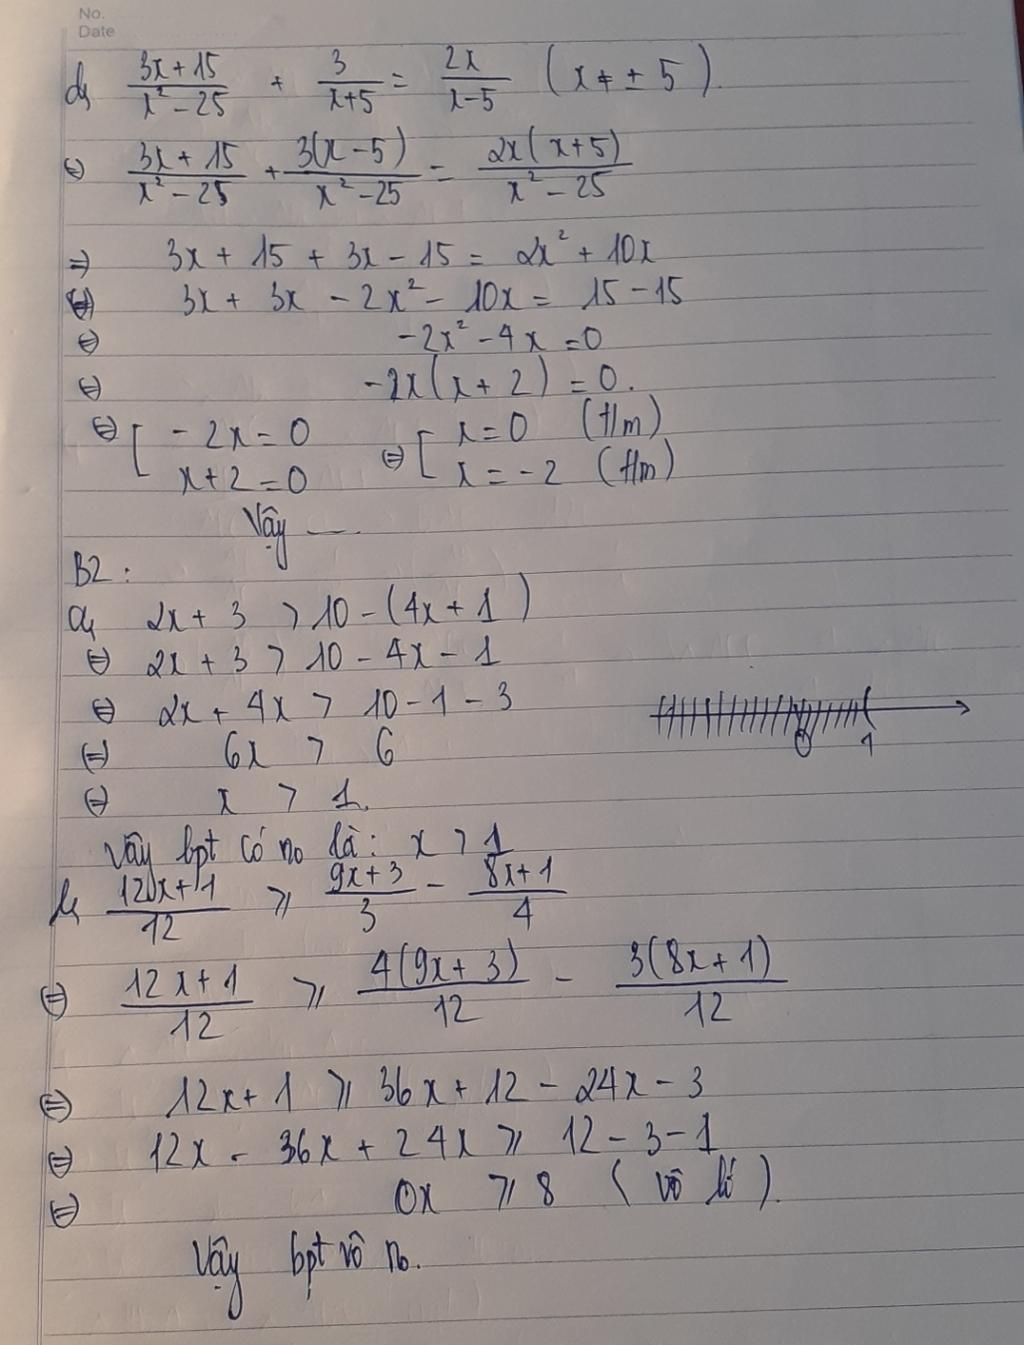 No.
Date
d, (3x+15)/(x²-25) + 3/(x+5) = 2x/(x-5) (x ≠ ± 5).
⇔ (3x+15)/(x²-25) + 3(x-5)/(x²-25) = 2x(x+5)/(x²-25)
⇒ 3x + 15 + 3x - 15 = 2x² + 10x
⇔ 3x + 3x - 2x² - 10x = 15 - 15
⇔ -2x² - 4x = 0
⇔ -2x(x+2) = 0.
⇔ [ -2x = 0 ⇔ [ x = 0 (t/m)
x+2 = 0 x = -2 (t/m)
Vậy ....
B2 :
a, 2x + 3 > 10 - (4x + 1)
⇔ 2x + 3 > 10 - 4x - 1
⇔ 2x + 4x > 10 - 1 - 3
⇔ 6x > 6
0 1
⇔ x > 1.
Vậy bpt có no là: x > 1
b, (12x+1)/12 ⩾ (9x+3)/3 - (8x+1)/4
⇔ (12x+1)/12 ⩾ 4(9x+3)/12 - 3(8x+1)/12
⇔ 12x + 1 ⩾ 36x + 12 - 24x - 3
⇔ 12x - 36x + 24x ⩾ 12 - 3 - 1
⇔ 0x ⩾ 8 ( vô lí ).
Vậy bpt vô no.